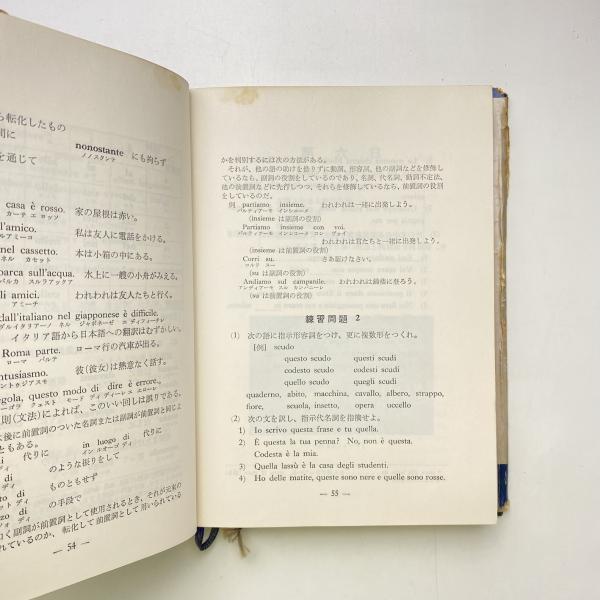 ら転化したもの
nonostante にも拘らず
ノノスタンテ
を通じて
casa è rosso. 家の屋根は赤い。
カーサ エ ロッソ
l'amico. 私は友人に電話をかける。
ルアミーコ
nel cassetto. 本は小箱の中にある。
ネル カセット
barca sull'acqua. 水上に一艘の小舟がみえる。
バルカ スルラアックア
gli amici. われわれは友人たちと行く。
アミーチ
dall'italiano nel giapponese è difficile.
イタリア語から日本語への翻訳はむずかしい。
Roma parte. ローマ行の汽車が出る。
ローマ パルテ
entusiasmo. 彼(彼女)は熱意なく話す。
ントゥジアスモ
regola, questo modo di dire è errore.
則(文法)によれば、このいい回しは誤りである。
な後に前置詞のついた名詞または副詞が前置詞と同じよ
ともある。
di 代りに in luogo di 代りに
ディ イン ルオーゴ ディ
di のような振りをして
di ものともせず
to di の手段で
zo di
く副詞が前置詞として使用されるとき、それが元来の
れているのか、転化して前置詞として用いられている
— 54 —
かを判別するには次の方法がある。
それが、他の語の助けを借りずに動詞、形容詞、他の副詞などを修飾し
ているなら、副詞の役割をしているのであり、名詞、代名詞、動詞不定法、
他の副詞などに先行しつつ、それらを修飾しているなら、前置詞の役割
をしているのだ。
例 partiamo insieme. われわれは一緒に出発しよう。
パルティアーモ インシエーメ
(insieme は副詞の役割)
Partiamo insieme con voi.
パルティアーモ インシエーメ コン ヴォイ
われわれは君たちと一緒に出発しよう。
(insieme は前置詞の役割)
Corri su. さあ駆けなさい。
コルリ スー
(su は副詞の役割)
Andiamo sul campanile. われわれは鐘楼に登ろう。
アンディアーモ スル カンパニーレ
(su は前置詞の役割)
練習問題 2
(1) 次の語に指示形容詞をつけ、更に複数形をつくれ。
[例] scudo
questo scudo questi scudi
codesto scudo codesti scudi
quello scudo quegli scudi
quaderno, abito, macchina, cavallo, albero, strappo,
fiore, scuola, insetto, opera uccello
(2) 次の文を訳し、指示代名詞を指摘せよ。
1) Io scrivo questa frase e tu quella.
2) È questa la tua penna? No, non è questa.
Codesta è la mia.
3) Quella lassù è la casa degli studenti.
4) Ho delle matite, queste sono nere e quelle sono rosse.
— 55 —